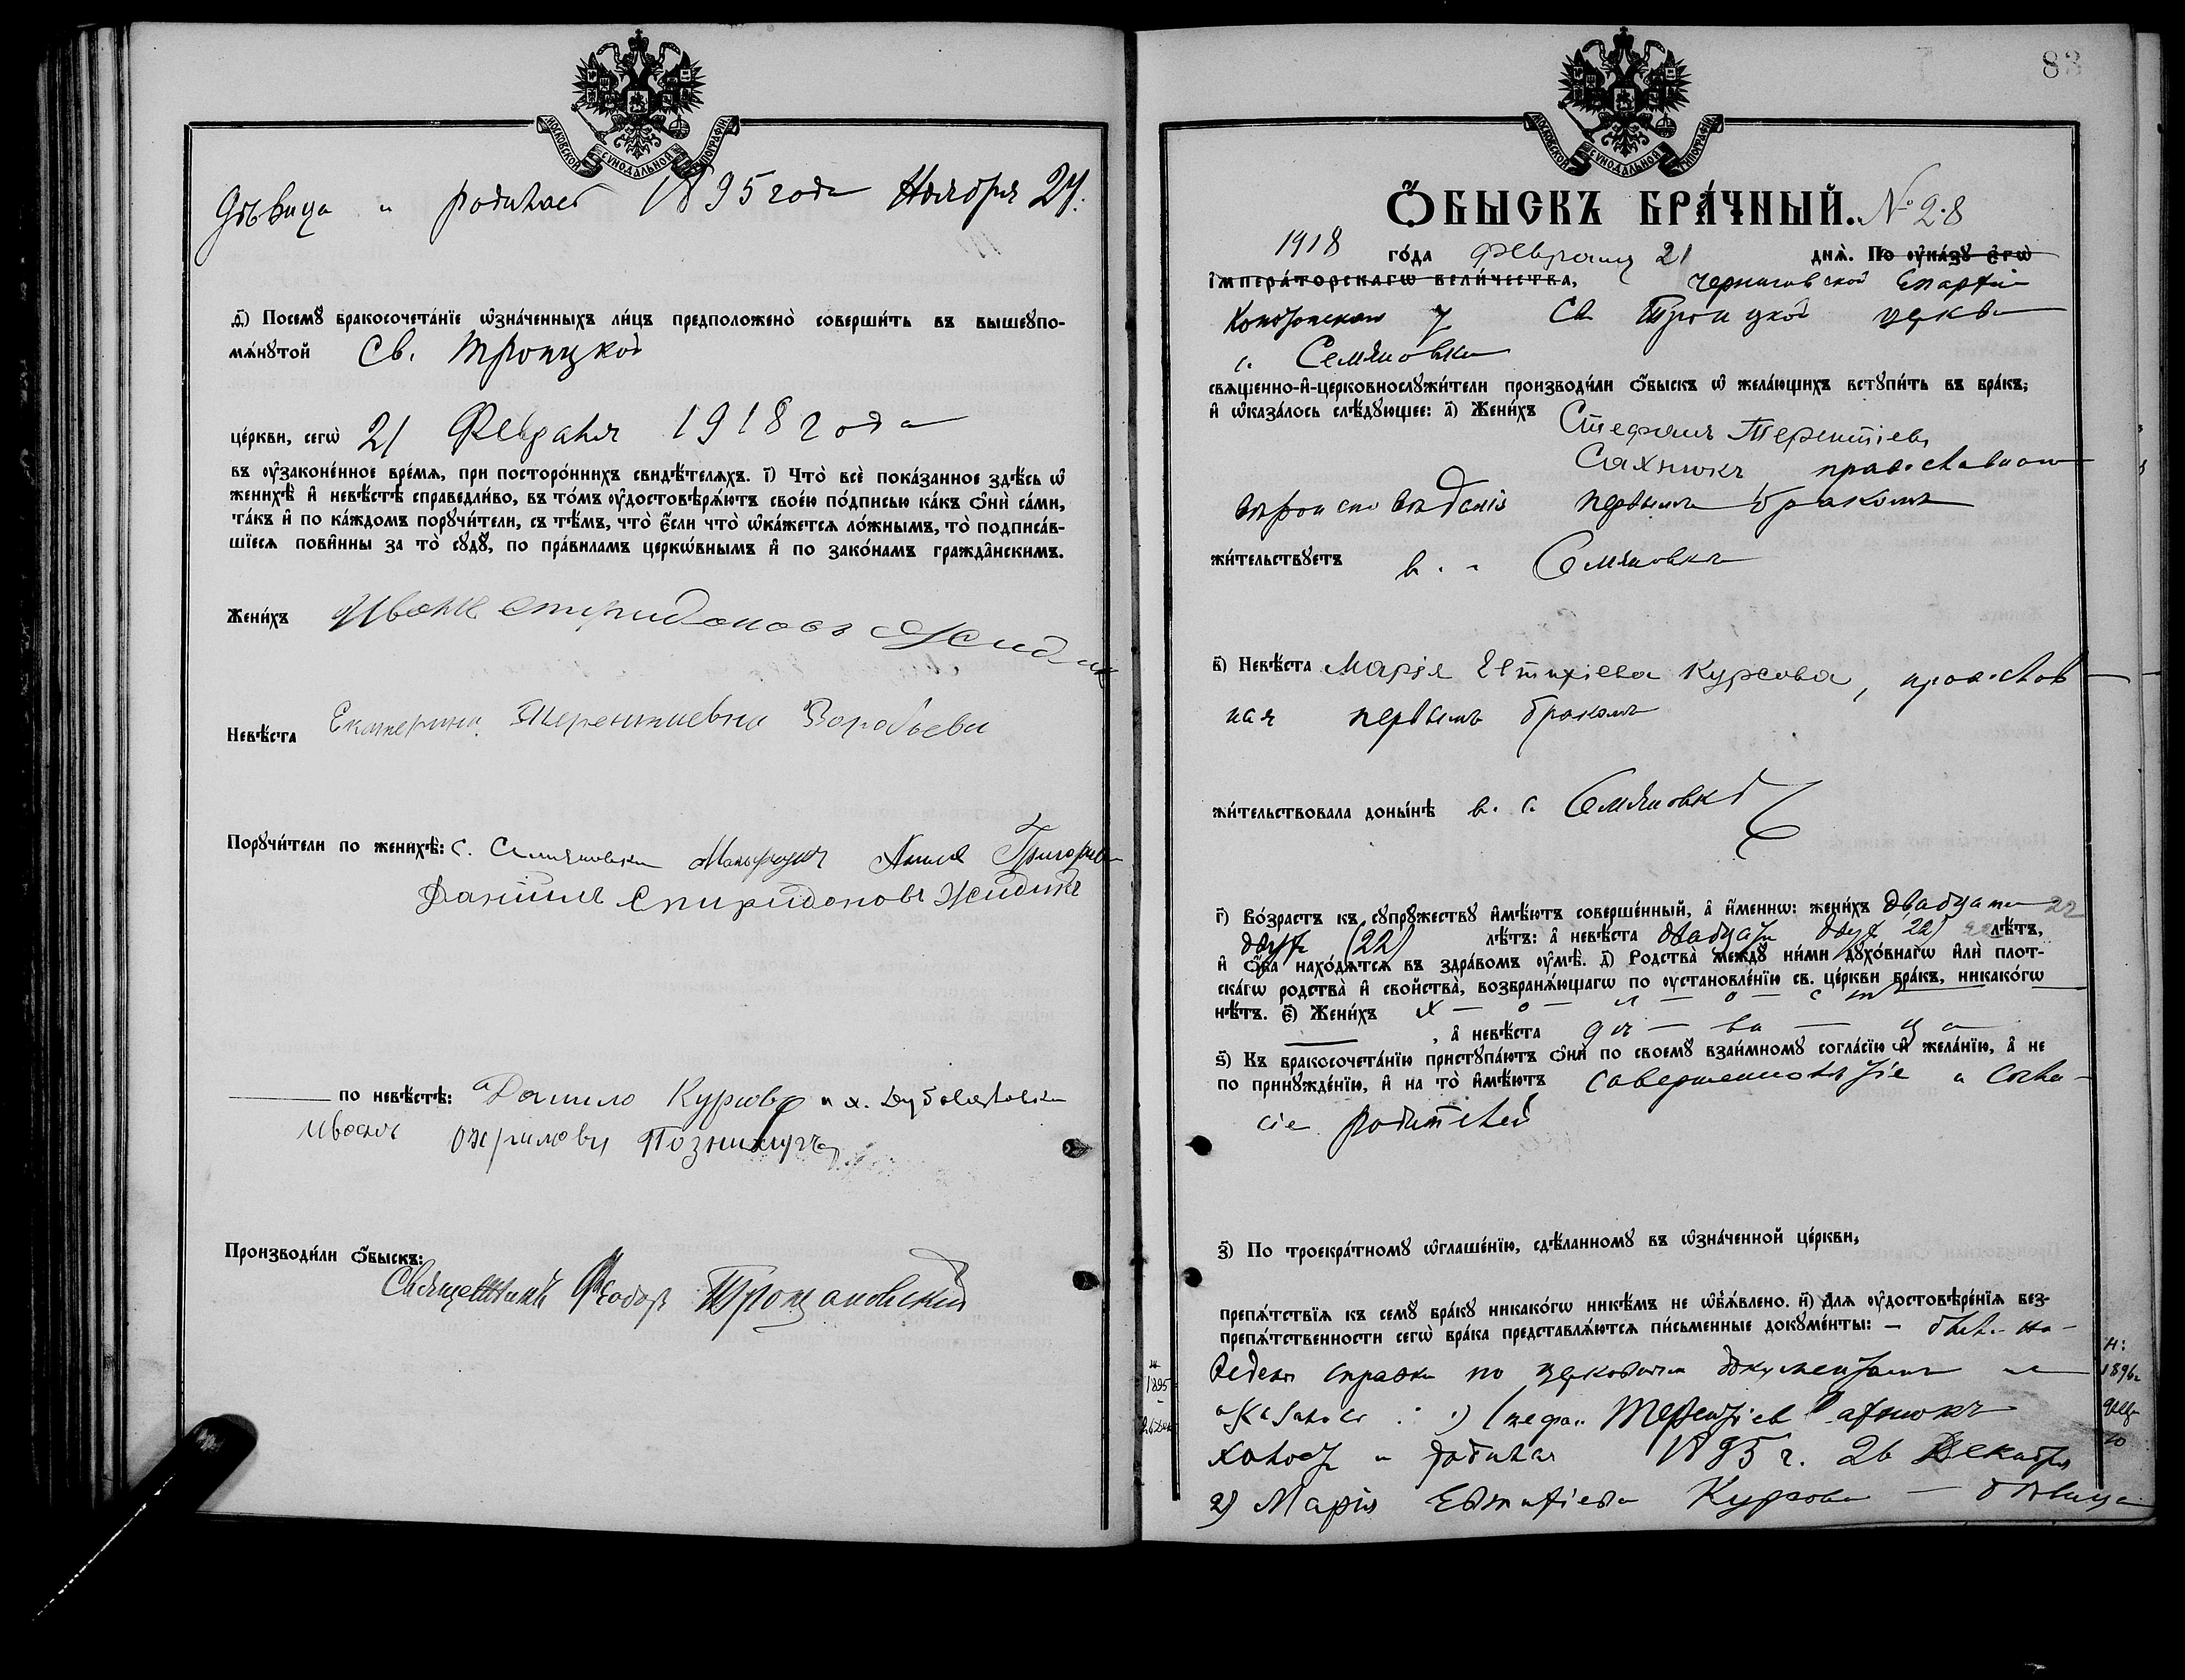 МОСКОВСКОЙ СѴНОДАЛЬНОЙ ТИПОГРАФІИ
Дѣвица и родилась 1895 года Ноября 24.
д҃) Посемꙋ бракосочета́нїе ѡ҆зна́ченныхъ ли́цъ предположено̀ соверши́ть въ вышеꙋпо-
мѧ́нꙋтой Св. Троицкой
це́ркви, сегѡ̀ 21 Февраля 1918 года
въ ᲂу҆законе́нное вре́мѧ, при посторо́ннихъ свидѣ́телѧхъ. і҃) Что̀ всѐ пока́занное здѣ́сь ѡ҆
женихѣ̀ и҆ невѣ́стѣ справедли́во, въ то́мъ ᲂу҆достовѣрѧ́ютъ свое́ю по́дписью ка́къ ѻ҆нѝ са́ми,
та́къ и҆ по ка́ждомъ порꙋчи́тели, съ тѣ́мъ, что̀ є҆́сли что̀ ѡ҆ка́жетсѧ ло́жнымъ, то̀ подписа́в-
шїесѧ пови́нны за то̀ сꙋдꙋ̀, по пра́виламъ церкѡ́внымъ и҆ по зако́намъ гражда́нскимъ.
Жени́хъ Иванъ Спиридоновъ Жидикъ
Невѣ́ста Екатерина Терентиевна Воробьева
Порꙋчи́тели по женихѣ̀: с. Семяновки Григорьев
Даніилъ Спиридоновъ Жидикъ
по невѣ́стѣ: Данило Курсовъ и х.
Иванъ
Производи́ли ѻ҆́быскъ:
Священникъ Ѳеодоръ Троцановскій
МОСКОВСКОЙ СѴНОДАЛЬНОЙ ТИПОГРАФІИ
83
Ѻ҆́БЫСКЪ БРА́ЧНЫЙ. № 28
1918 го́да Февраля 21 днѧ̀. По ᲂу҆ка́зꙋ є҆гѡ̀
і҆мпера́торскагѡ вели́чества, Черниговской Епархіи
Конотопскаго у Св Троицкой церкви
с. Семяновки
свѧще́нно-и҆-церковнослꙋжи́тели производи́ли ѻ҆́быскъ ѡ҆ жела́ющихъ встꙋпи́ть въ бра́къ,
и҆ ѡ҆каза́лось слѣ́дꙋющее: а҃) Жени́хъ Стефанъ Терентіевъ
Сахнюкъ православнаго
вѣроисповѣданія первымъ бракомъ
жи́тельствꙋетъ в. с. Семяновкѣ
в҃) Невѣ́ста Марія Евтихіева Курсова, православ
ная первымъ бракомъ
жи́тельствовала доны́нѣ в. с. Семяновкѣ
г҃) Во́зрастъ къ сꙋпрꙋ́жествꙋ и҆мѣ́ютъ соверше́нный, а҆ и҆́меннѡ: жени́хъ двадцати 22
двухъ (22) лѣ́тъ: а҆ невѣ́ста двадцати двухъ 22) лѣ́тъ,
и҆ ѻ҆́ба нахо́дѧтсѧ въ здра́вомъ ᲂу҆мѣ̀. д҃) Родства̀ междꙋ̀ ни́ми дꙋхо́внагѡ и҆лѝ плот-
ска́гѡ родства̀ и҆ сво́йства, возбранѧ́ющагѡ по ᲂу҆становле́нїю св. це́ркви бра́къ, никако́гѡ
нѣ́тъ. є҃) Жени́хъ х — о — л — о — с — т
, а҆ невѣ́ста дѣ — ви — ца
ѕ҃) Къ бракосочета́нїю пристꙋпа́ютъ ѻ҆нѝ по своемꙋ̀ взаи́мномꙋ согла́сїю и҆ жела́нїю, а҆ не
по принꙋжде́нїю, и҆ на то̀ и҆мѣ́ютъ совершеннолѣтіе и согла-
сіе родителей
з҃) По троекра́тномꙋ ѡ҆глаше́нїю, сдѣ́ланномꙋ въ ѡ҆зна́ченной це́ркви,
препѧ́тствїѧ къ семꙋ̀ бра́кꙋ никако́гѡ никѣ́мъ не ѡ҆бъѧ́влено. и҃) Длѧ ᲂу҆достовѣре́нїѧ без-
препѧ́тственности сегѡ̀ бра́ка представлѧ́ютсѧ пи́сьменные докꙋме́нты: —
ведена справка по церковнымъ документамъ и
оказалось: 1) Стефанъ Терентіев Сахнюкъ
холостъ и родился 1895 г. 26 Декабря
2) Марія Евтихіева Курсова — дѣвица
1895
26 Дек
1896